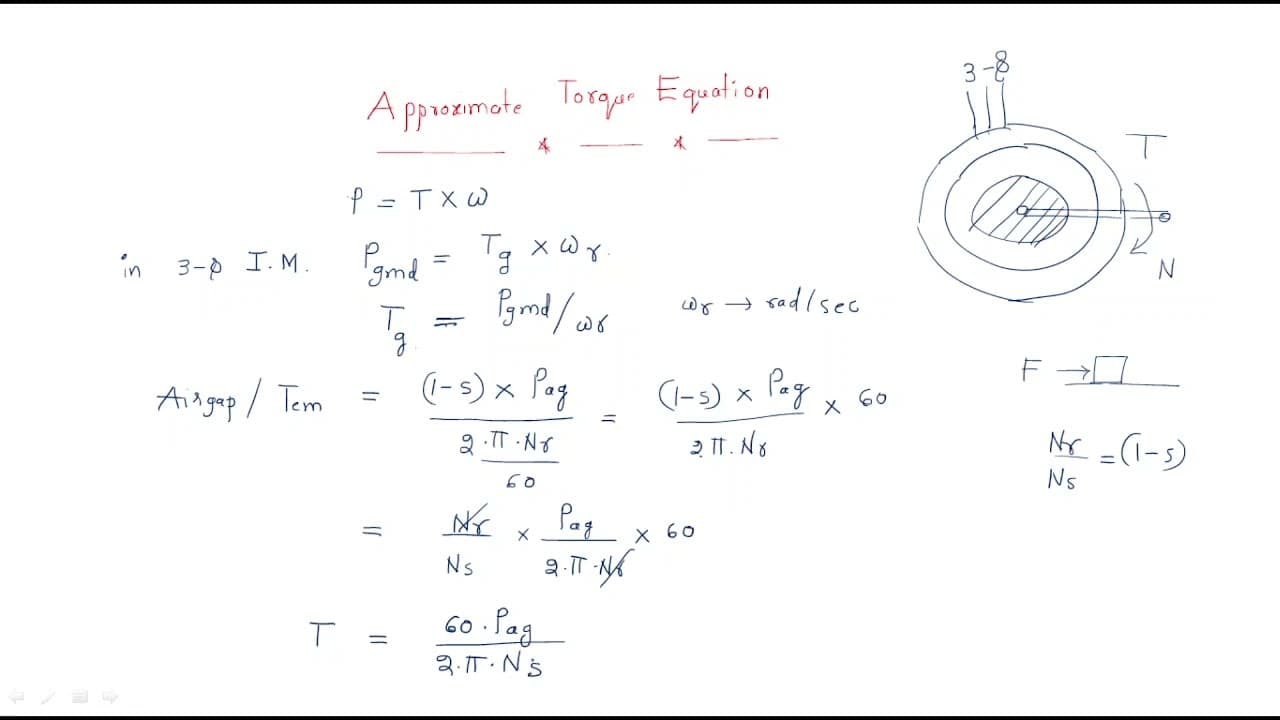 Approximate Torque Equation
P = T × ω
in 3-φ I.M. Pgmd = Tg × ωr.
Tg = Pgmd/ωr ωr → rad/sec
Airgap / Tem = (1-s) × Pag / (2.π.Nr / 60) = (1-s) × Pag / 2π.Nr × 60
= Nr/Ns × Pag / 2.π.Nr × 60
T = 60.Pag / 2.π.Ns
3-8
T
N
F →
Nr/Ns = (1-s)